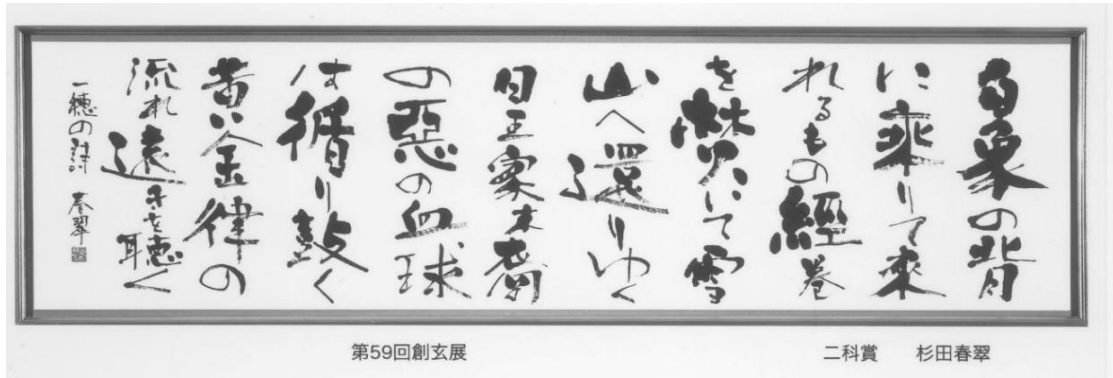 白象の背
に乘りて來
れるもの經巻
を焚いて雪
山へ還りゆく
日王家末裔
の惡の血球
は循り鼓く
黄金律の
流れ遠きを聴く
一穂の詩 春翠
第59回創玄展 二科賞 杉田春翠